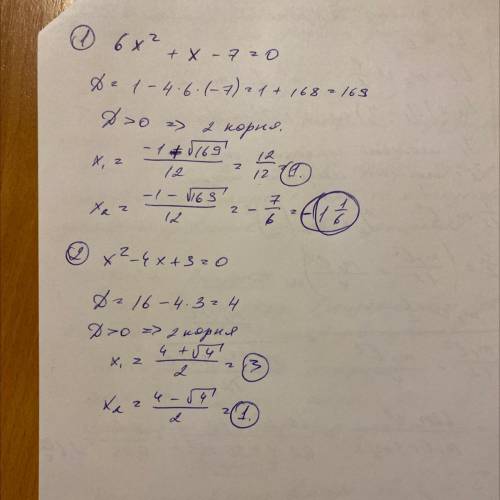 1 6x² + x - 7 = 0
D = 1 - 4·6·(-7) = 1 + 168 = 169
D > 0 => 2 корня.
x₁ = (-1 + √169)/12 = 12/12 = 1.
x₂ = (-1 - √169)/12 = - 7/6 = - 1 1/6
2 x² - 4x + 3 = 0
D = 16 - 4·3 = 4
D > 0 => 2 корня
x₁ = (4 + √4)/2 = 3
x₂ = (4 - √4)/2 = 1.